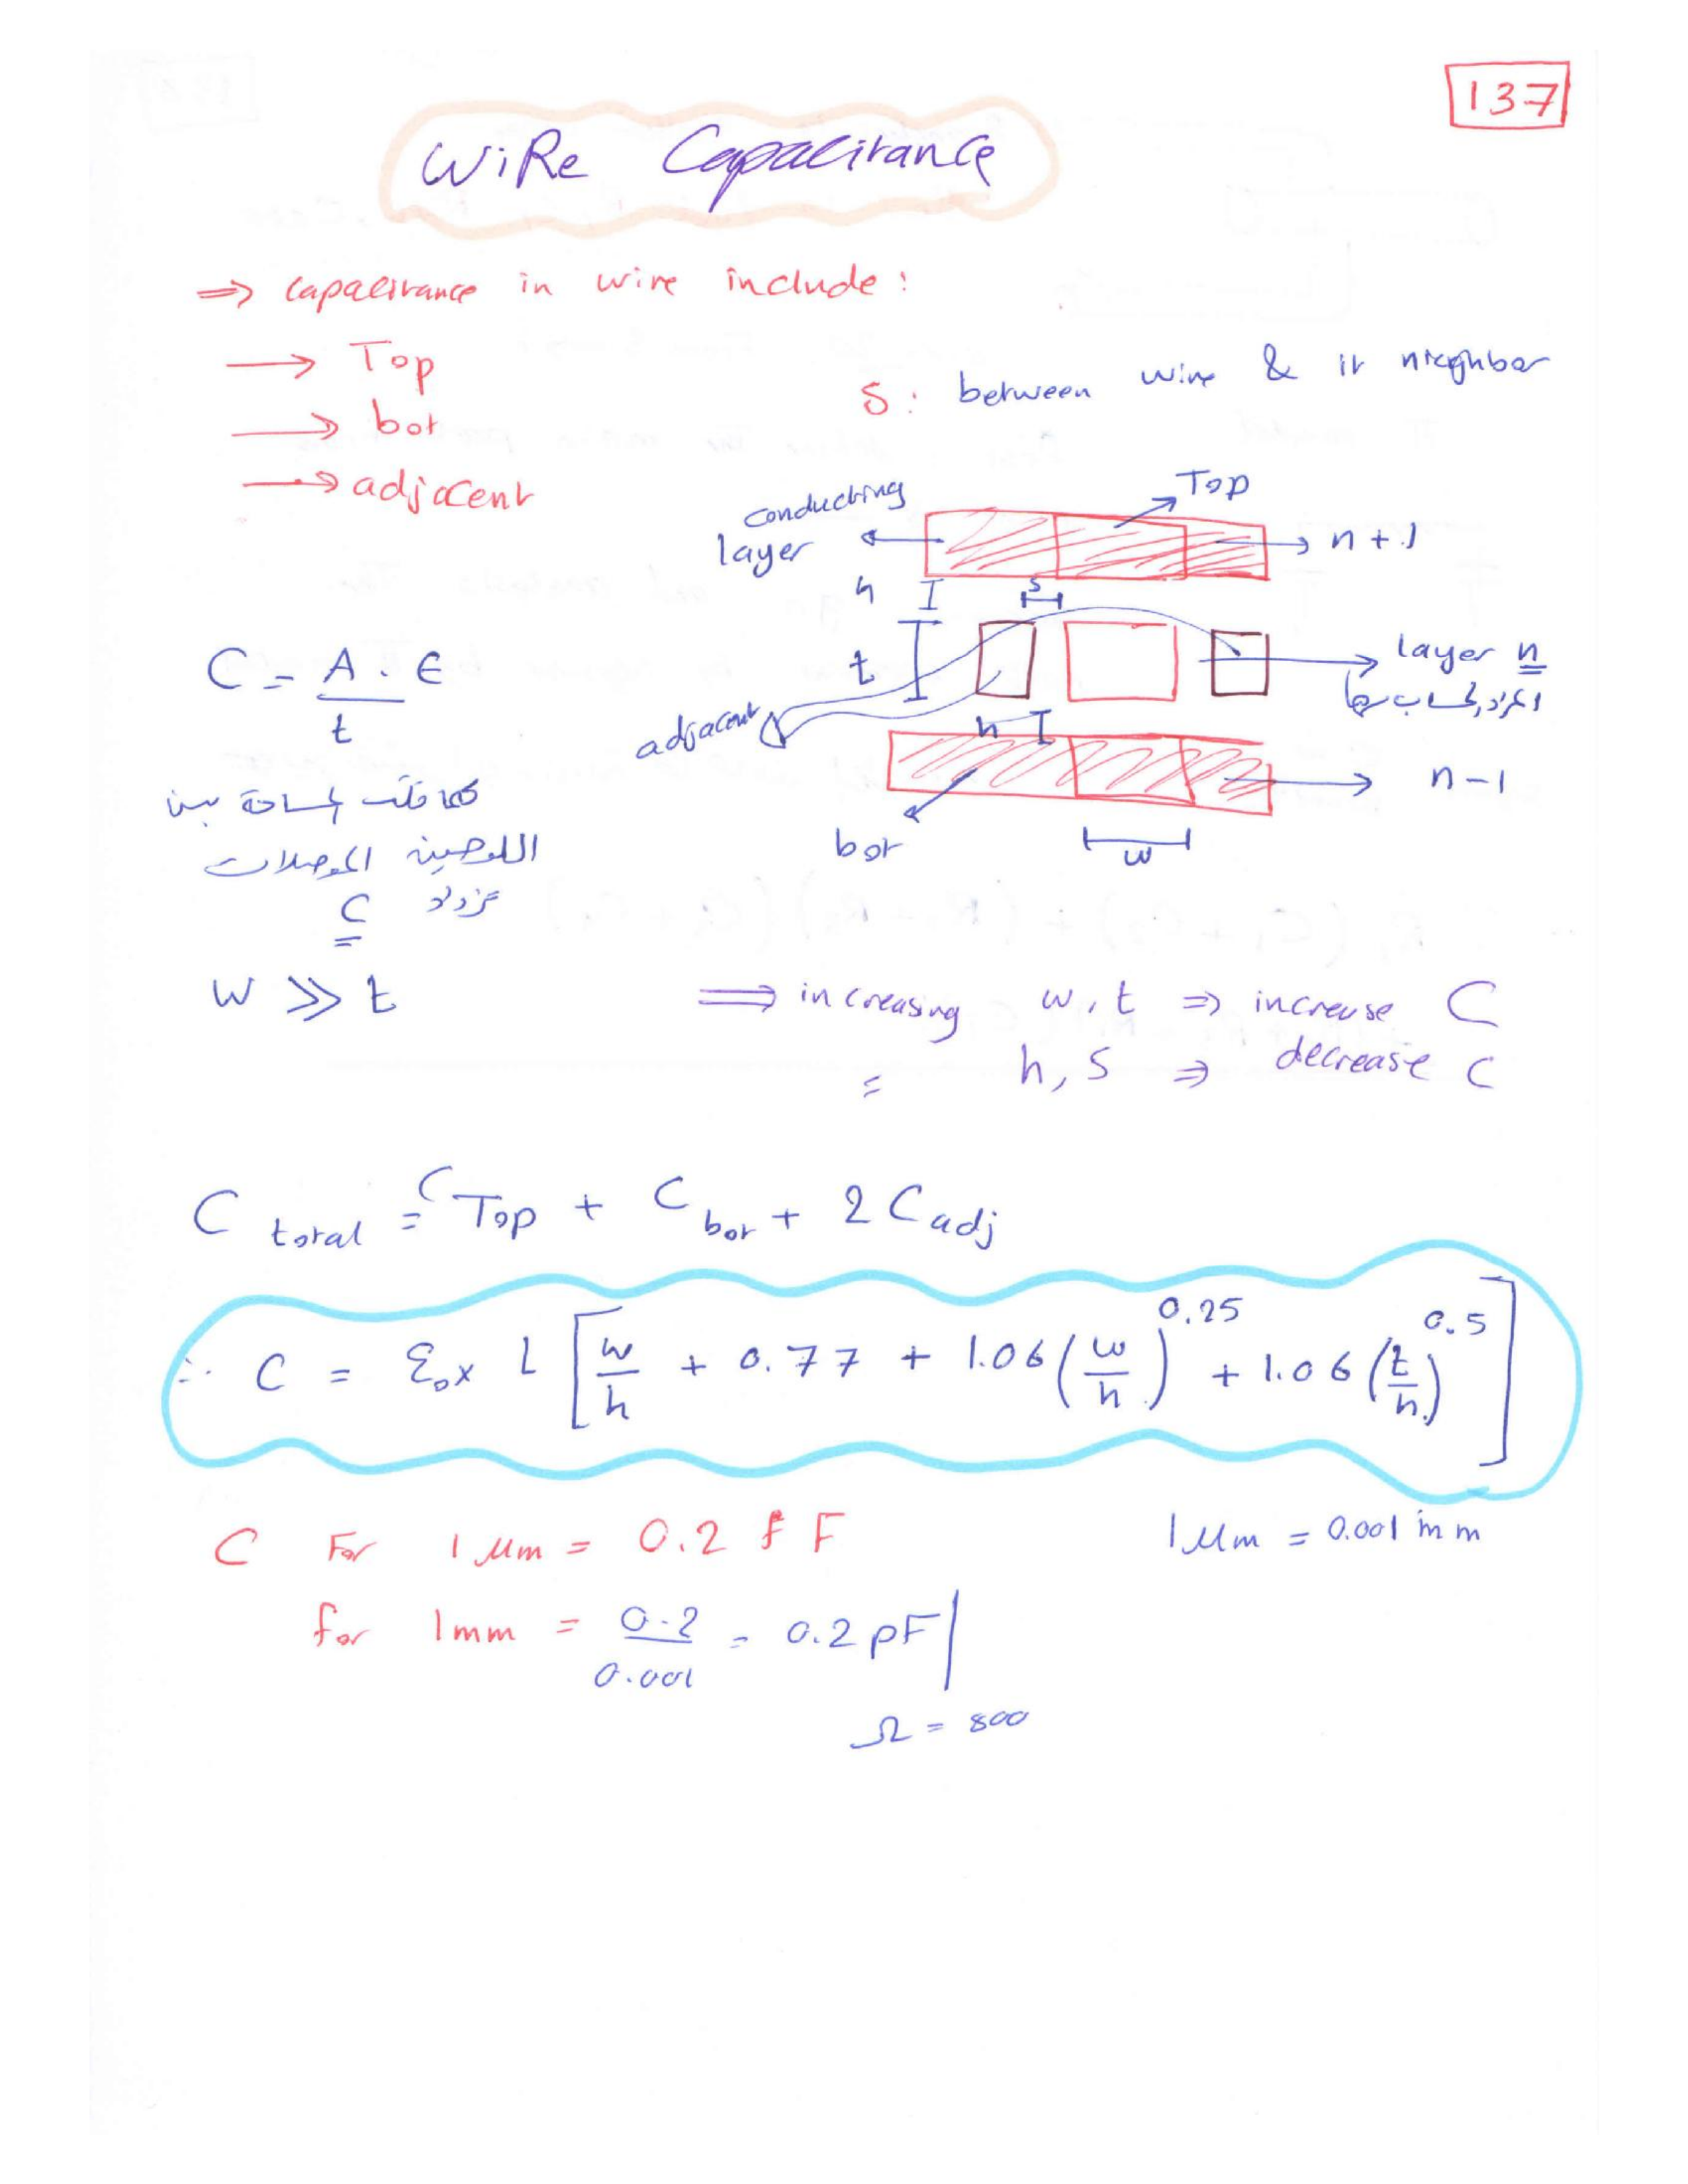 137
WiRe Capacitance
⇒ capacitance in wire include :
→ Top
→ bot
→ adjacent
S : between wire & it nieghbor
conducting layer
Top
n + 1
h
s
t
layer n
المراد لحساب لها
adjacent
h
n - 1
bot
w
C = A . ϵ / t
كلما قلت المساحة بين
اللوحين الموصلات
تزداد C
W ≫ t
⇒ increasing w, t ⇒ increase C
= h, S ⇒ decrease C
C total = C Top + C bot + 2 C adj
∴ C = Ɛox L [ w/h + 0.77 + 1.06 (w/h)^0.25 + 1.06 (t/h)^0.5 ]
C For 1 µm = 0.2 fF
1 µm = 0.001 mm
for 1mm = 0.2 / 0.001 = 0.2 pF
Ω = 800